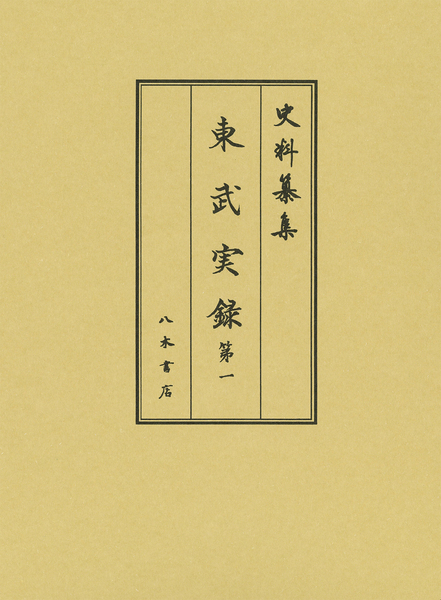 史料纂集
東武実録 第一
八木書店